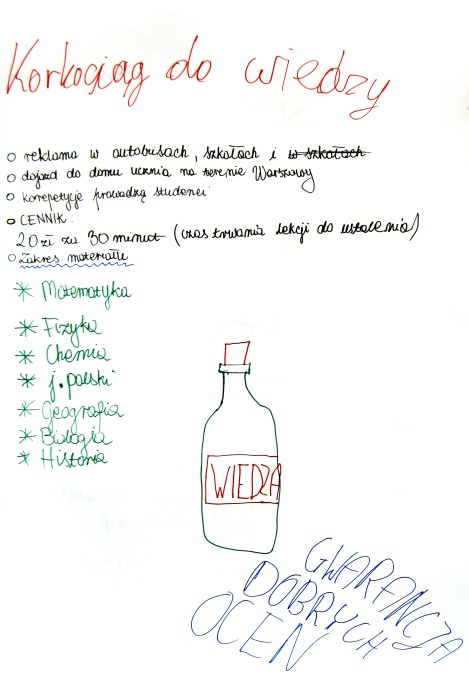 Korkociąg do wiedzy
o reklama w autobusach, szkołach i w szkołach
o dojazd do domu ucznia na terenie Warszawy
o korepetycje prowadzą studenci
o CENNIK:
20 zł za 30 minut (czas trwania lekcji do ustalenia)
o Zakres materiału
* Matematyka
* Fizyka
* Chemia
* j. polski
* Geografia
* Biologia
* Historia
WIEDZA
GWARANCJA
DOBRYCH
OCEN